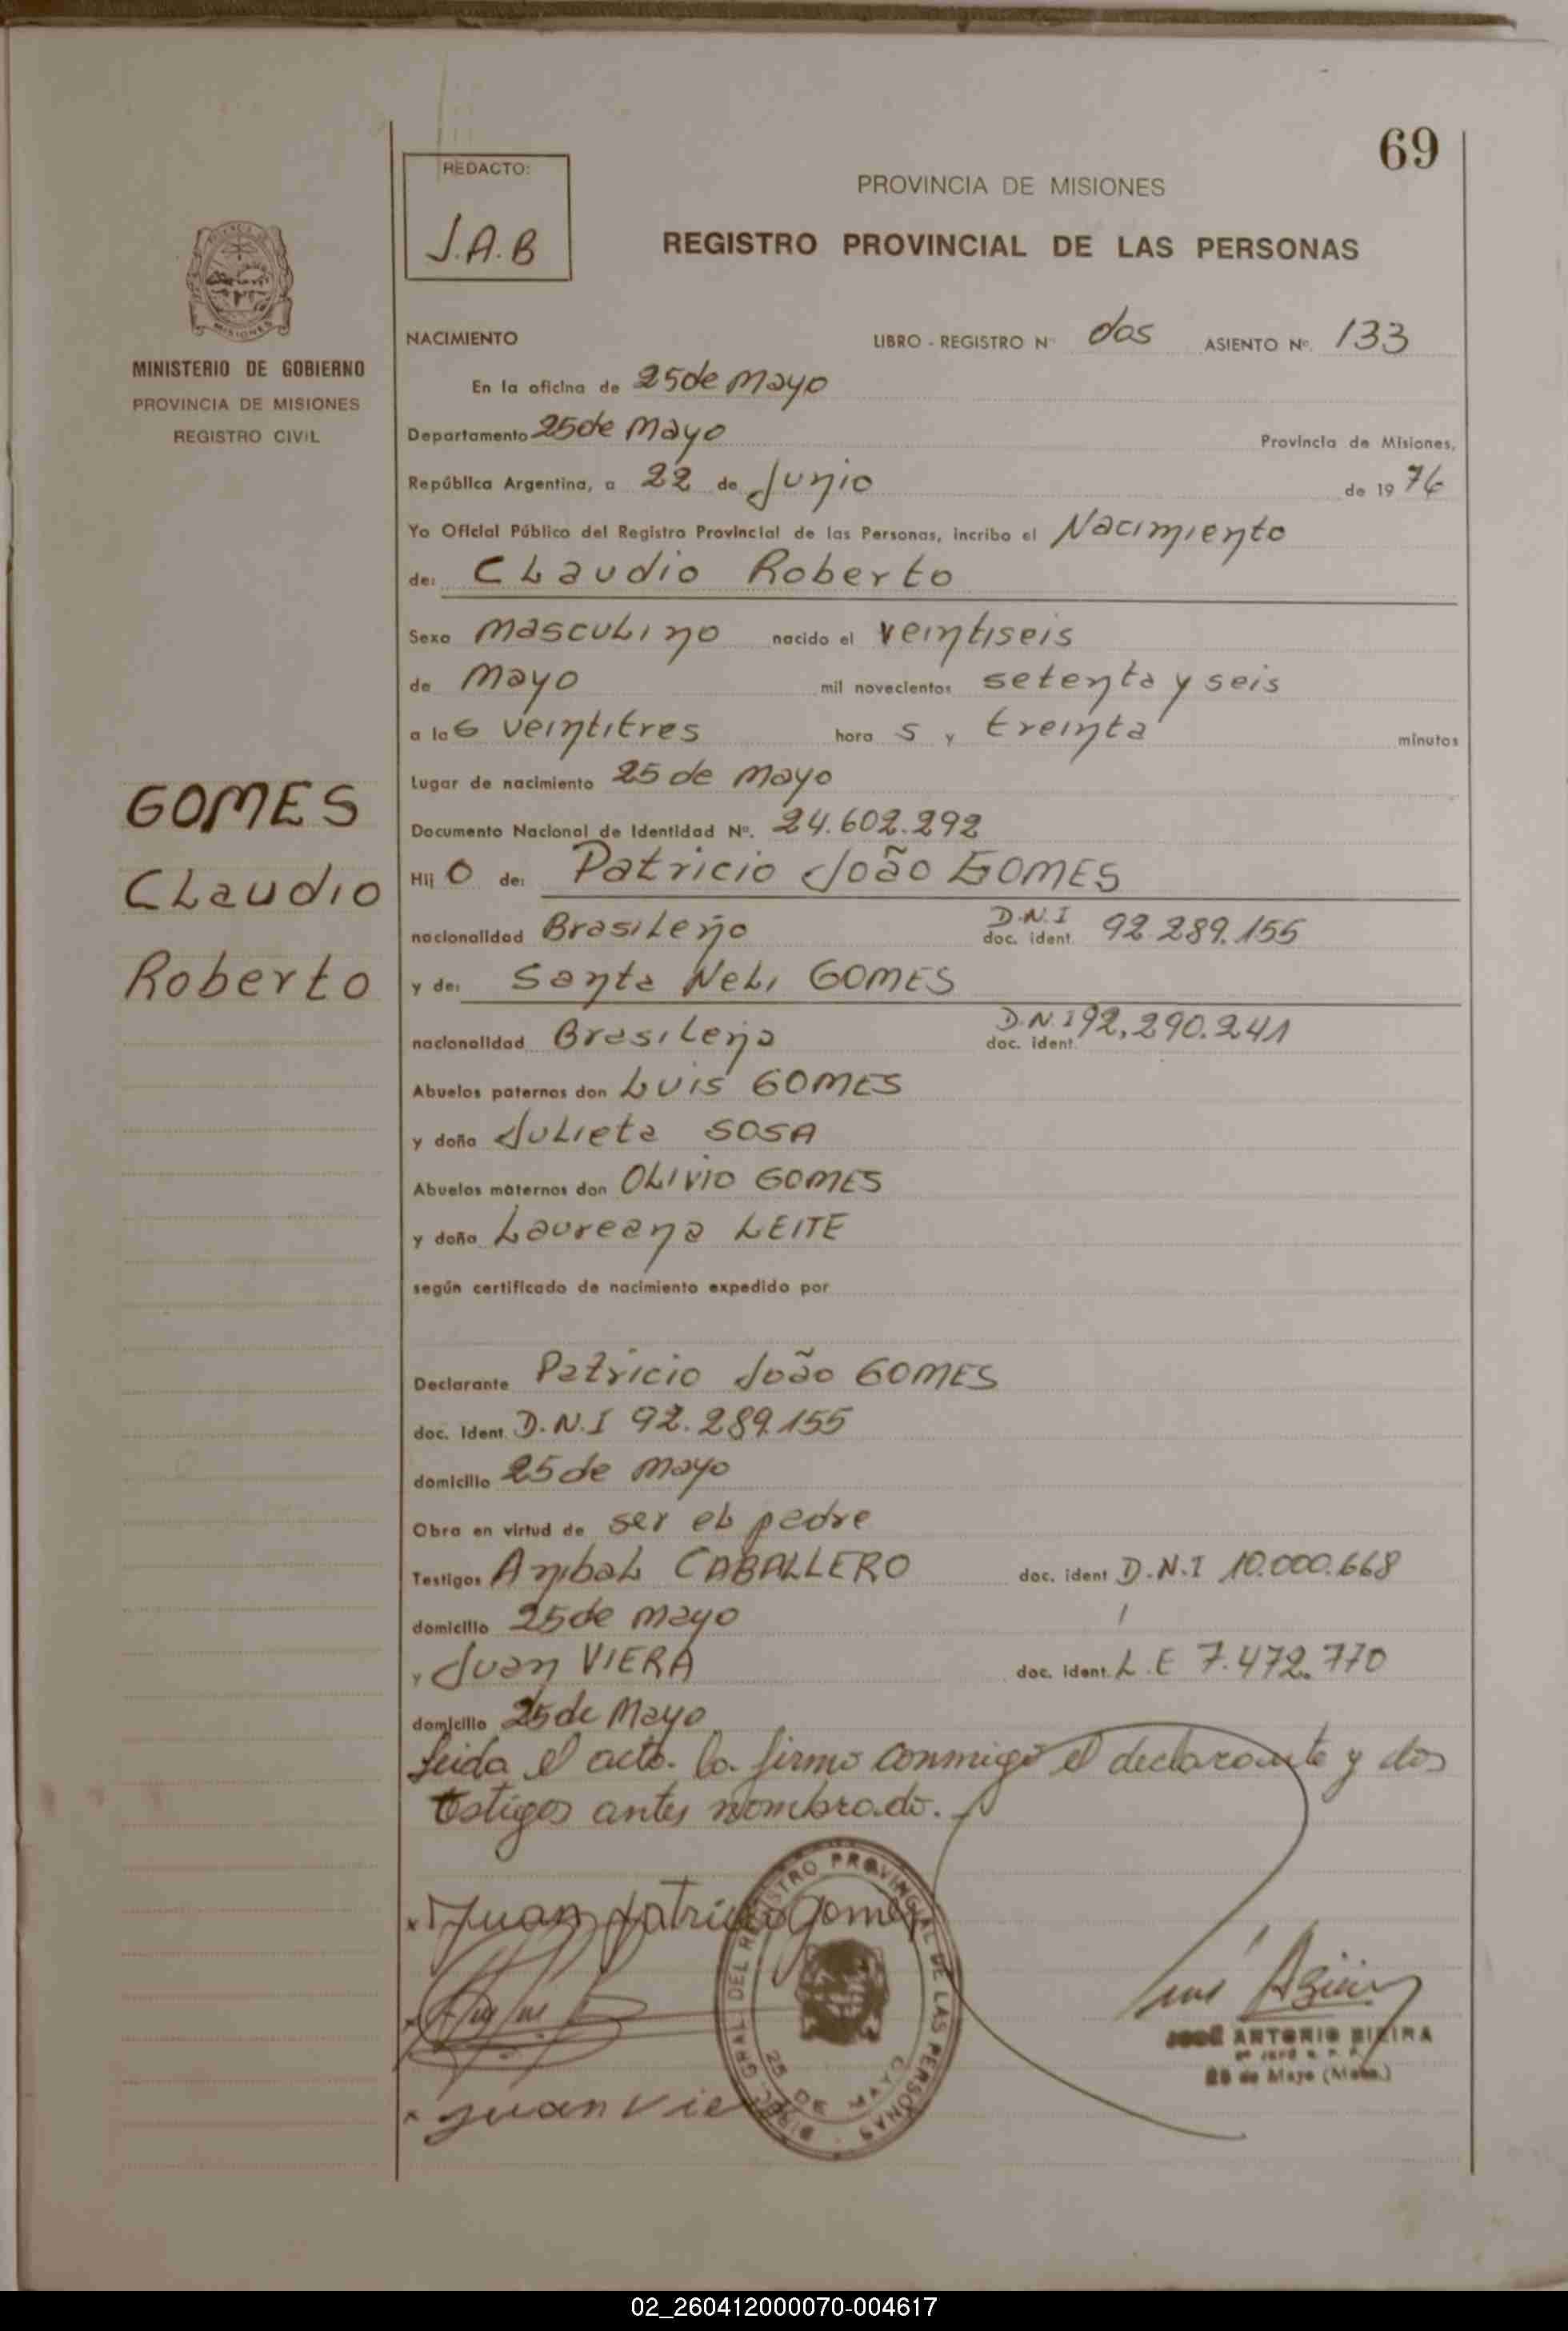 69
REDACTO:
J.A.B
PROVINCIA DE MISIONES
REGISTRO PROVINCIAL DE LAS PERSONAS
MISIONES
MINISTERIO DE GOBIERNO
PROVINCIA DE MISIONES
REGISTRO CIVIL
NACIMIENTO LIBRO - REGISTRO Nº dos ASIENTO Nº. 133
En la oficina de 25 de Mayo
Departamento 25 de Mayo Provincia de Misiones,
República Argentina, a 22 de Junio de 1976
Yo Oficial Público del Registro Provincial de las Personas, incribo el Nacimiento
de: Claudio Roberto
Sexo masculino nacido el veintiseis
de Mayo mil novecientos setenta y seis
a las veintitres horas y treinta minutos
Lugar de nacimiento 25 de Mayo
Documento Nacional de Identidad Nº. 24.602.292
GOMES
Claudio
Roberto
Hijo de: Patricio João GOMES
nacionalidad Brasileño D.N.I doc. ident. 92.289.155
y de: Santa Neli GOMES
nacionalidad Brasileña D.N.I doc. ident. 92.290.241
Abuelos paternos don Luis GOMES
y doña Julieta SOSA
Abuelos maternos don OLIVIO GOMES
y doña Laureana LEITE
según certificado de nacimiento expedido por
Declarante Patricio João GOMES
doc. Ident. D.N.I 92.289.155
domicilio 25 de Mayo
Obra en virtud de ser el padre
Testigos Anibal CABALLERO doc. ident D.N.I 10.000.668
domicilio 25 de Mayo
y Juan VIERA doc. ident. L.E 7.472.770
domicilio 25 de Mayo
Leida el acta. la firma conmigo el declarante y dos
testigos antes nombrado.
Juan Patricio Gomes
Juan Vie
DIREC. GRAL. DEL REGISTRO PROVINCIAL DE LAS PERSONAS
25 DE MAYO
JOSÉ ANTONIO
25 de Mayo (Mnes.)
02_260412000070-004617